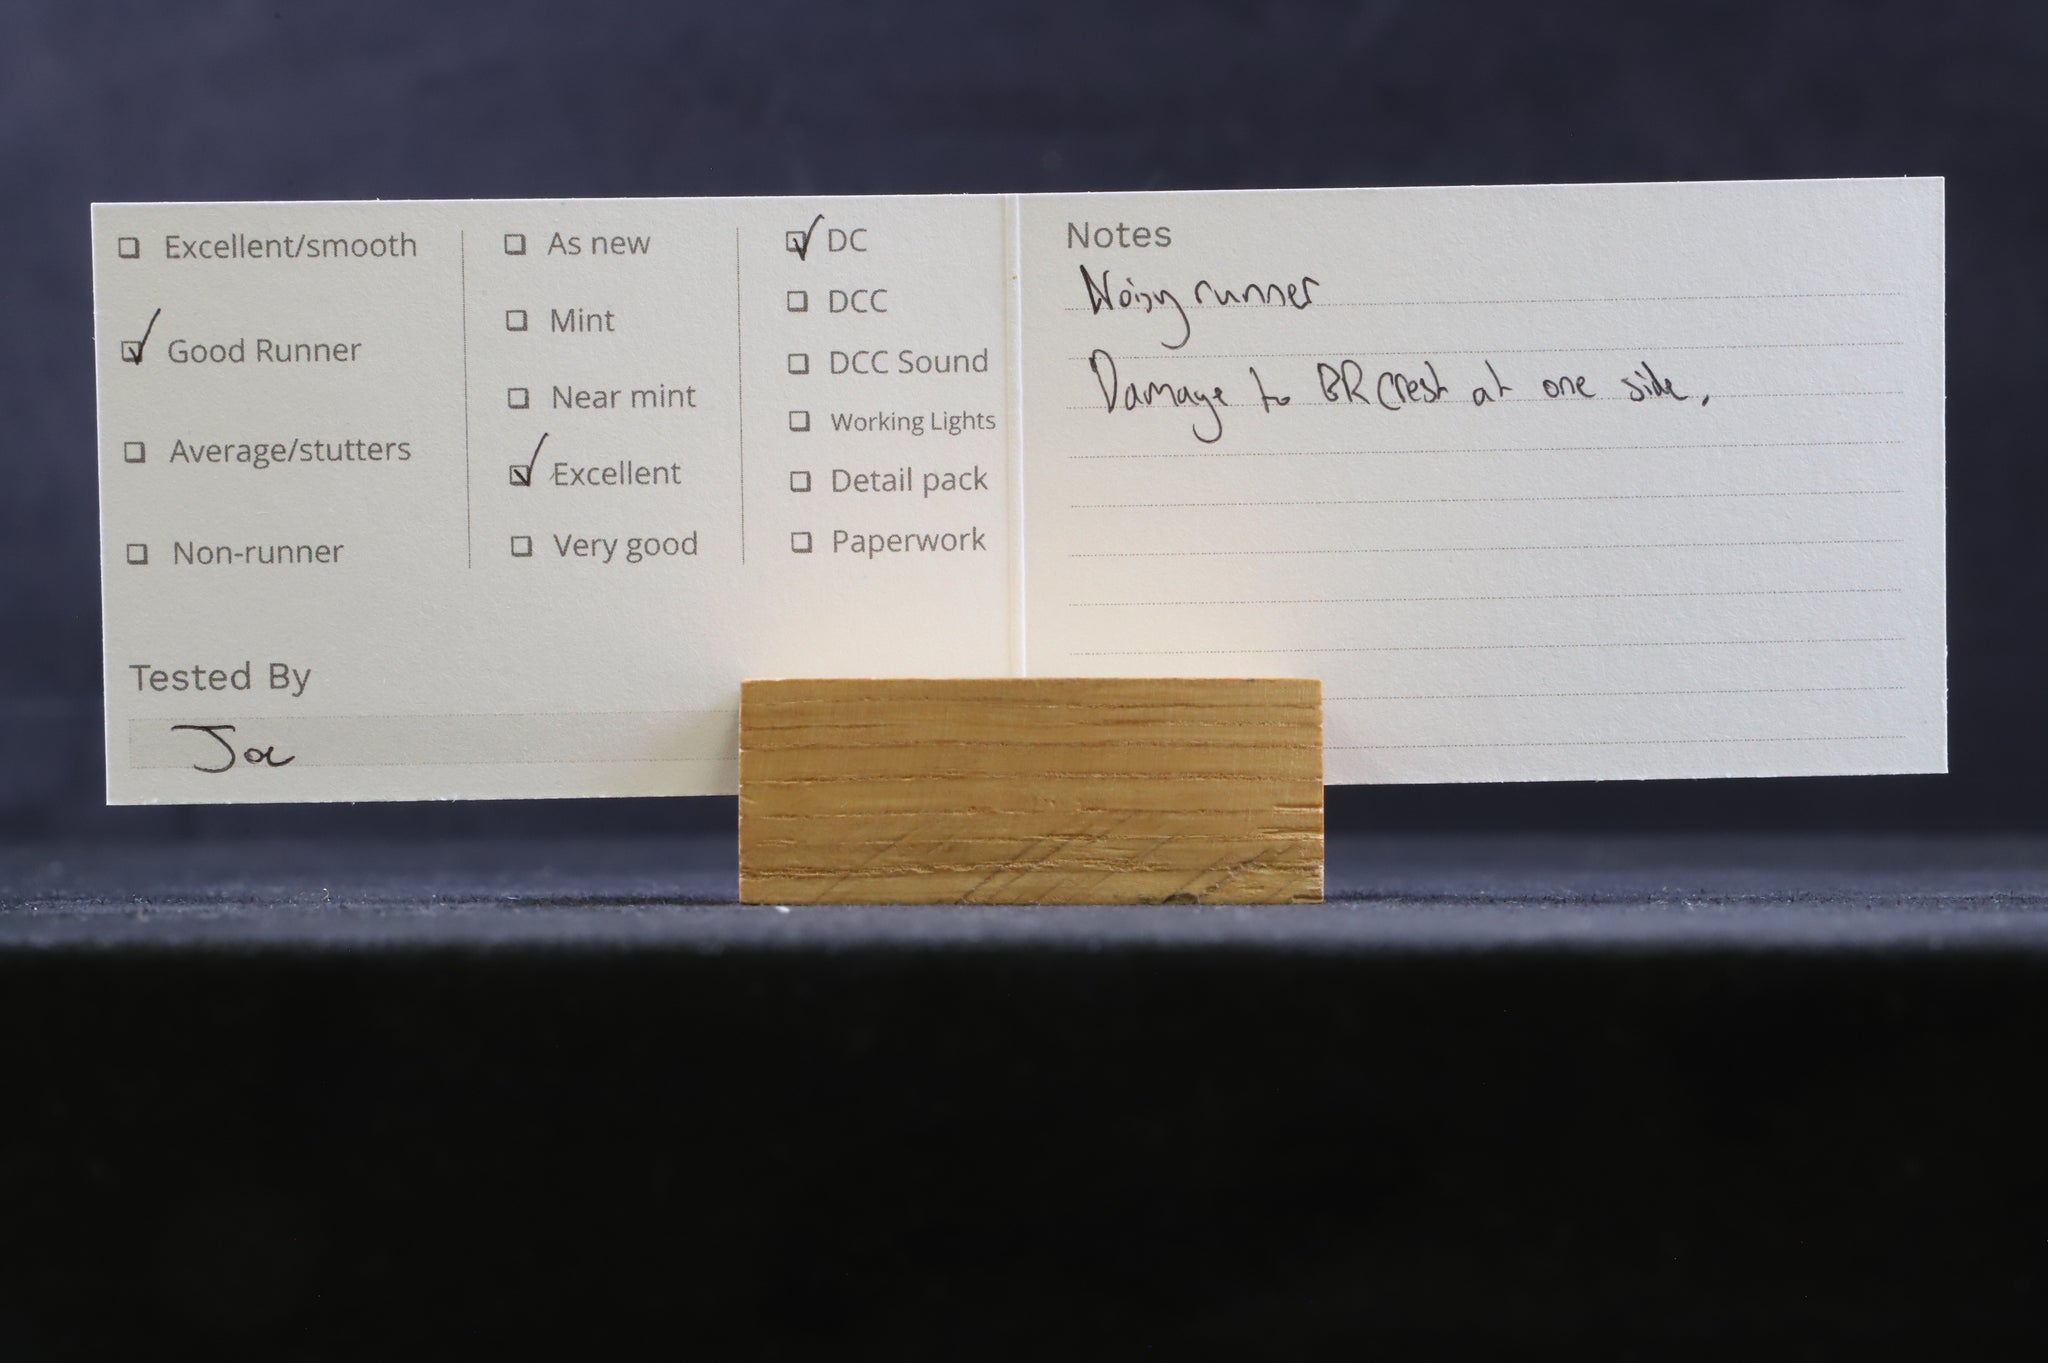 Excellent/smooth
Good Runner
Average/stutters
Non-runner
As new
Mint
Near mint
Excellent
Very good
DC
DCC
DCC Sound
Working Lights
Detail pack
Paperwork
Tested By
Joe
Notes
Noisy runner
Damage to BR crest at one side.